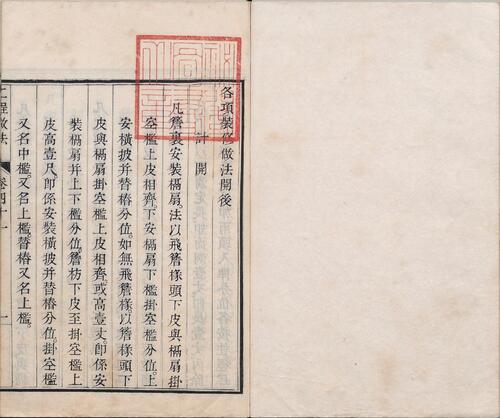 各項裝修做法開後
計開
凡簷裏安裝槅扇法以飛簷椽頭下皮與槅扇掛
空檻上皮相齊下安槅扇下檻掛空檻分位上
安橫披并替樁分位如無飛簷椽以簷椽頭下
皮與槅扇掛空檻上皮相齊或高壹丈卽係安
裝槅扇并上下檻分位簷枋下皮至掛空檻上
皮高壹尺卽係安裝橫披并替樁分位掛空檻
又名中檻又名上檻替樁又名上檻
工程做法 卷四十一 一